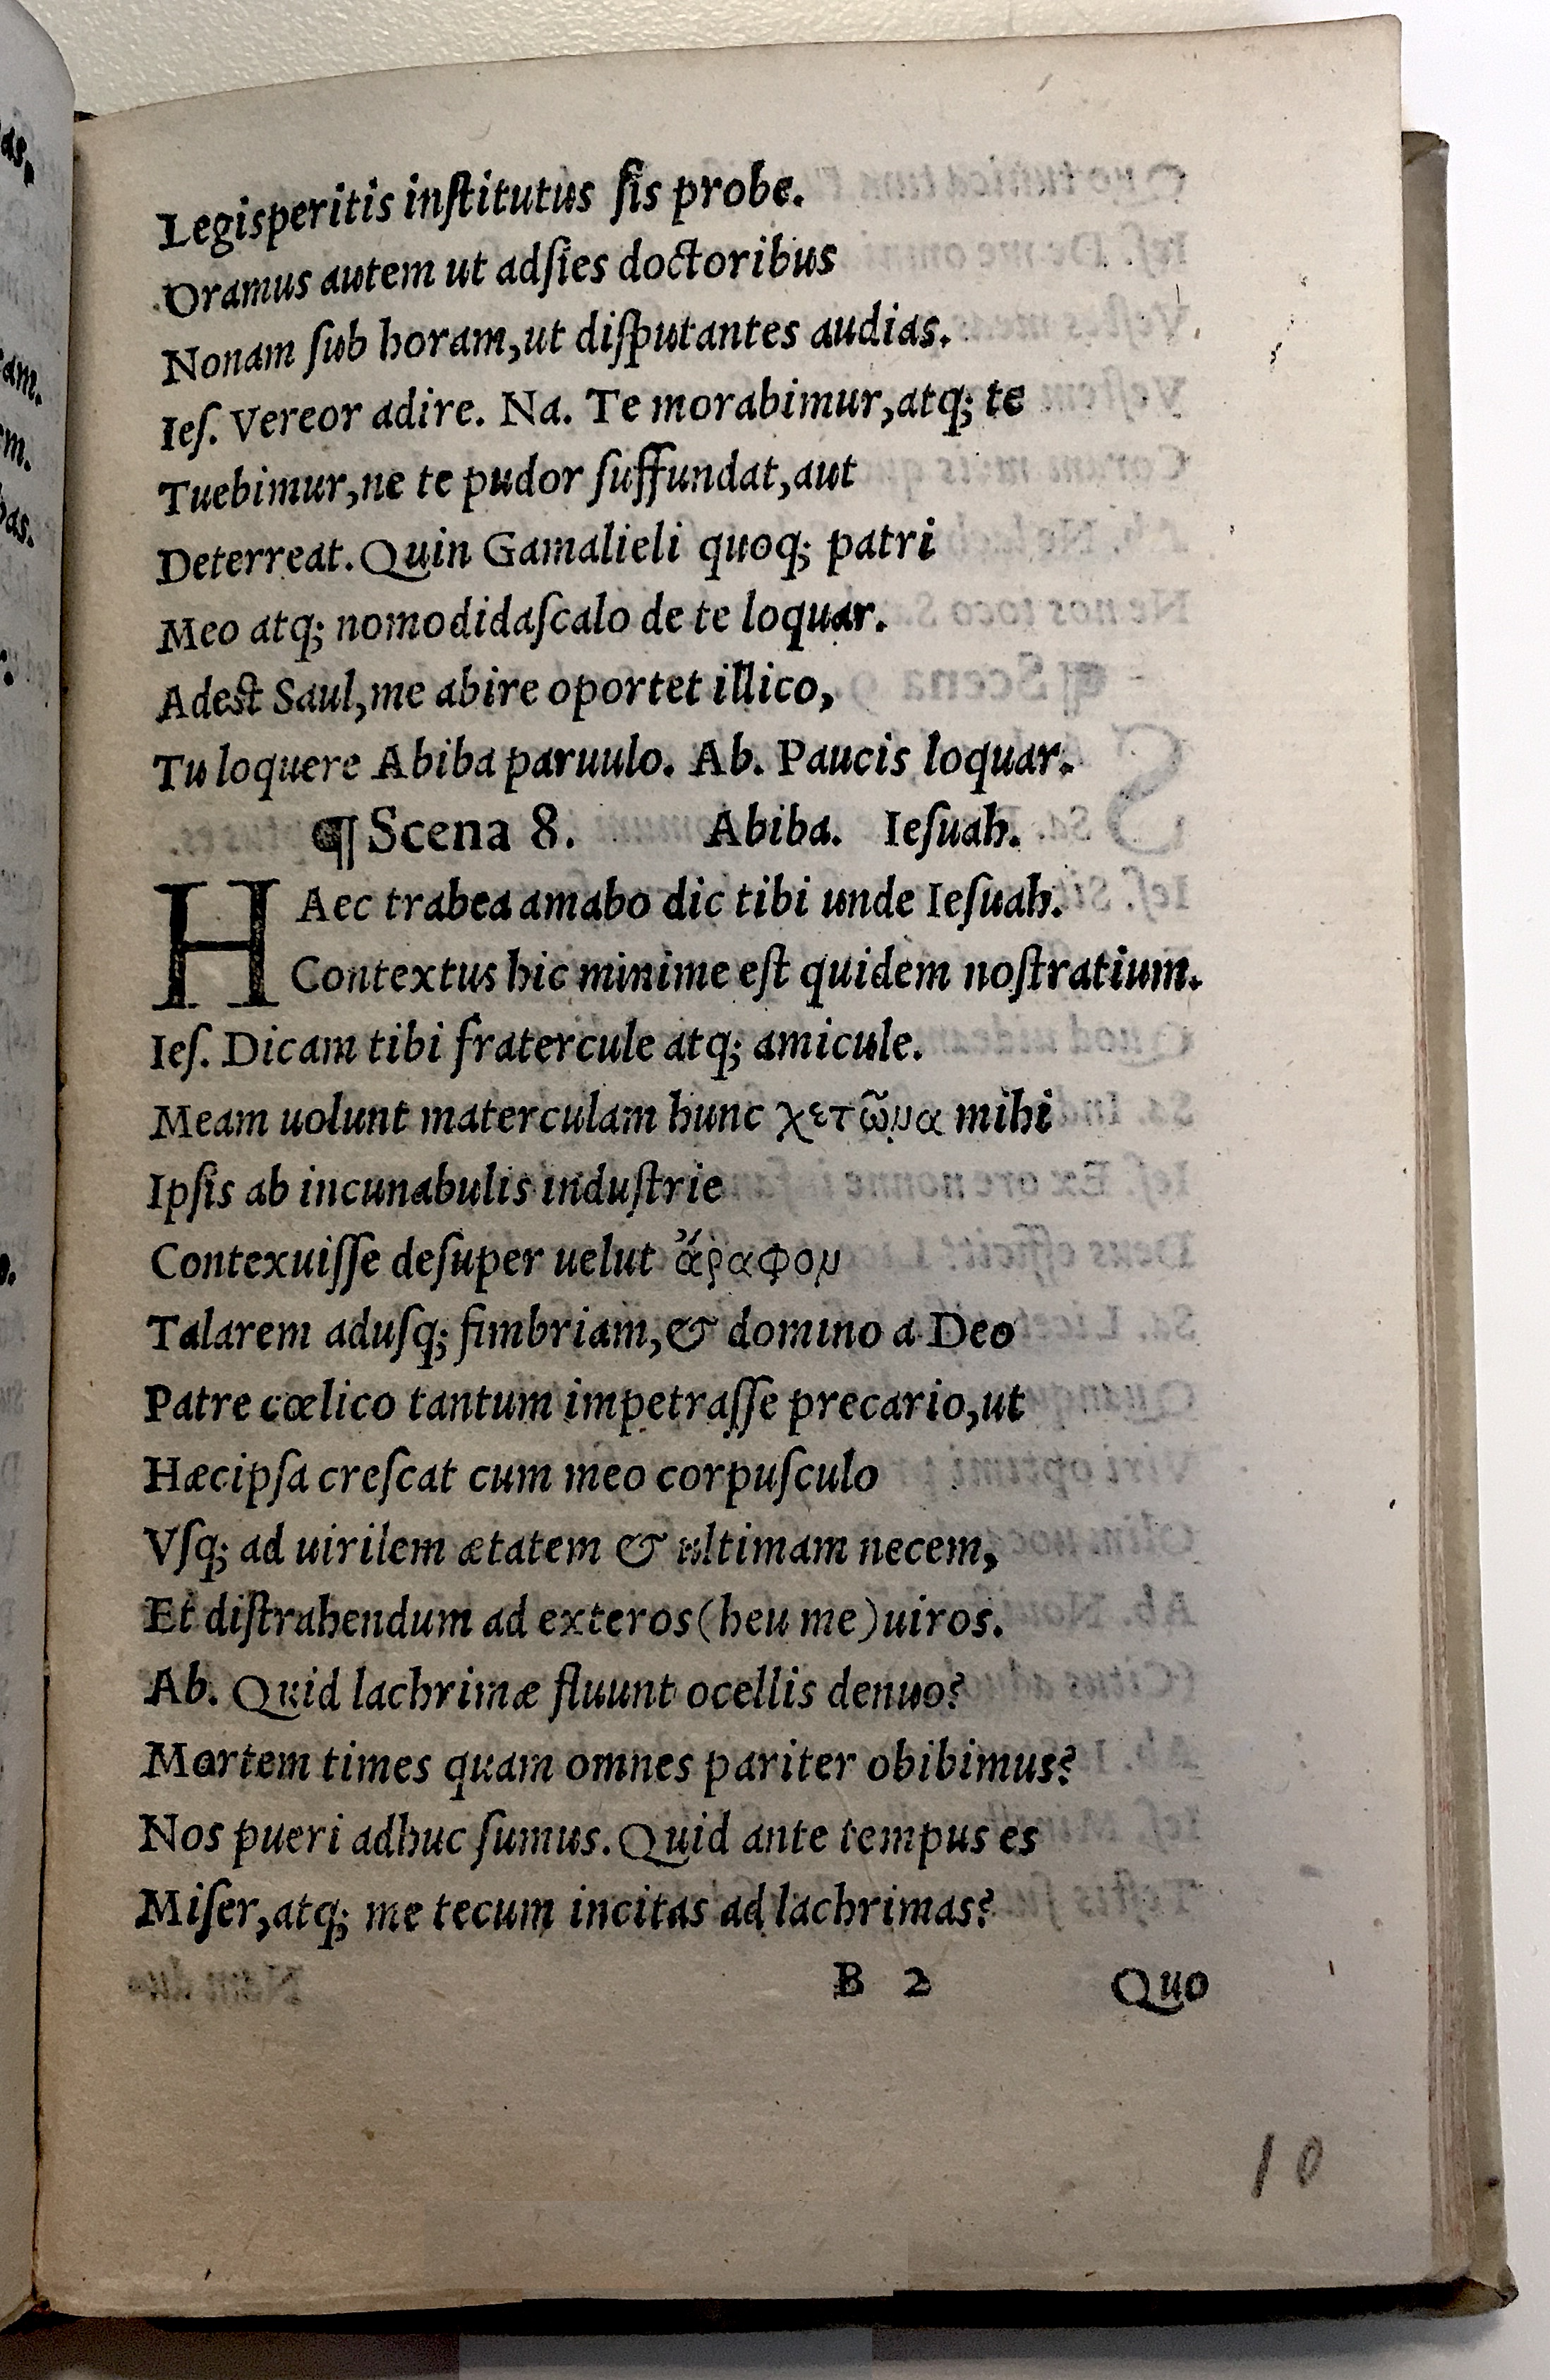 Legisperitis institutus sis probe.
Oramus autem ut adsies doctoribus
Nonam sub horam,ut disputantes audias.
Ies. Vereor adire. Na. Te morabimur,atq; te
Tuebimur,ne te pudor suffundat,aut
Deterreat. Quin Gamalieli quoq; patri
Meo atq; nomodidascalo de te loquar.
Adest Saul,me abire oportet illico,
Tu loquere Abiba paruulo. Ab. Paucis loquar.
¶ Scena 8. Abiba. Iesuah.
HAec trabea amabo dic tibi unde Iesuah.
Contextus hic minime est quidem nostratium.
Ies. Dicam tibi fratercule atq; amicule.
Meam uolunt materculam hunc χετῶνα mihi
Ipsis ab incunabulis industrie
Contexuisse desuper uelut ἄραφον
Talarem adusq; fimbriam,& domino a Deo
Patre cœlico tantum impetrasse precario,ut
Hæcipsa crescat cum meo corpusculo
Vsq; ad uirilem ætatem & ultimam necem,
Et distrahendum ad exteros(heu me)uiros.
Ab. Quid lachrimæ fluunt ocellis denuo?
Mortem times quam omnes pariter obibimus?
Nos pueri adhuc sumus. Quid ante tempus es
Miser,atq; me tecum incitas ad lachrimas?
B 2 Quo
10